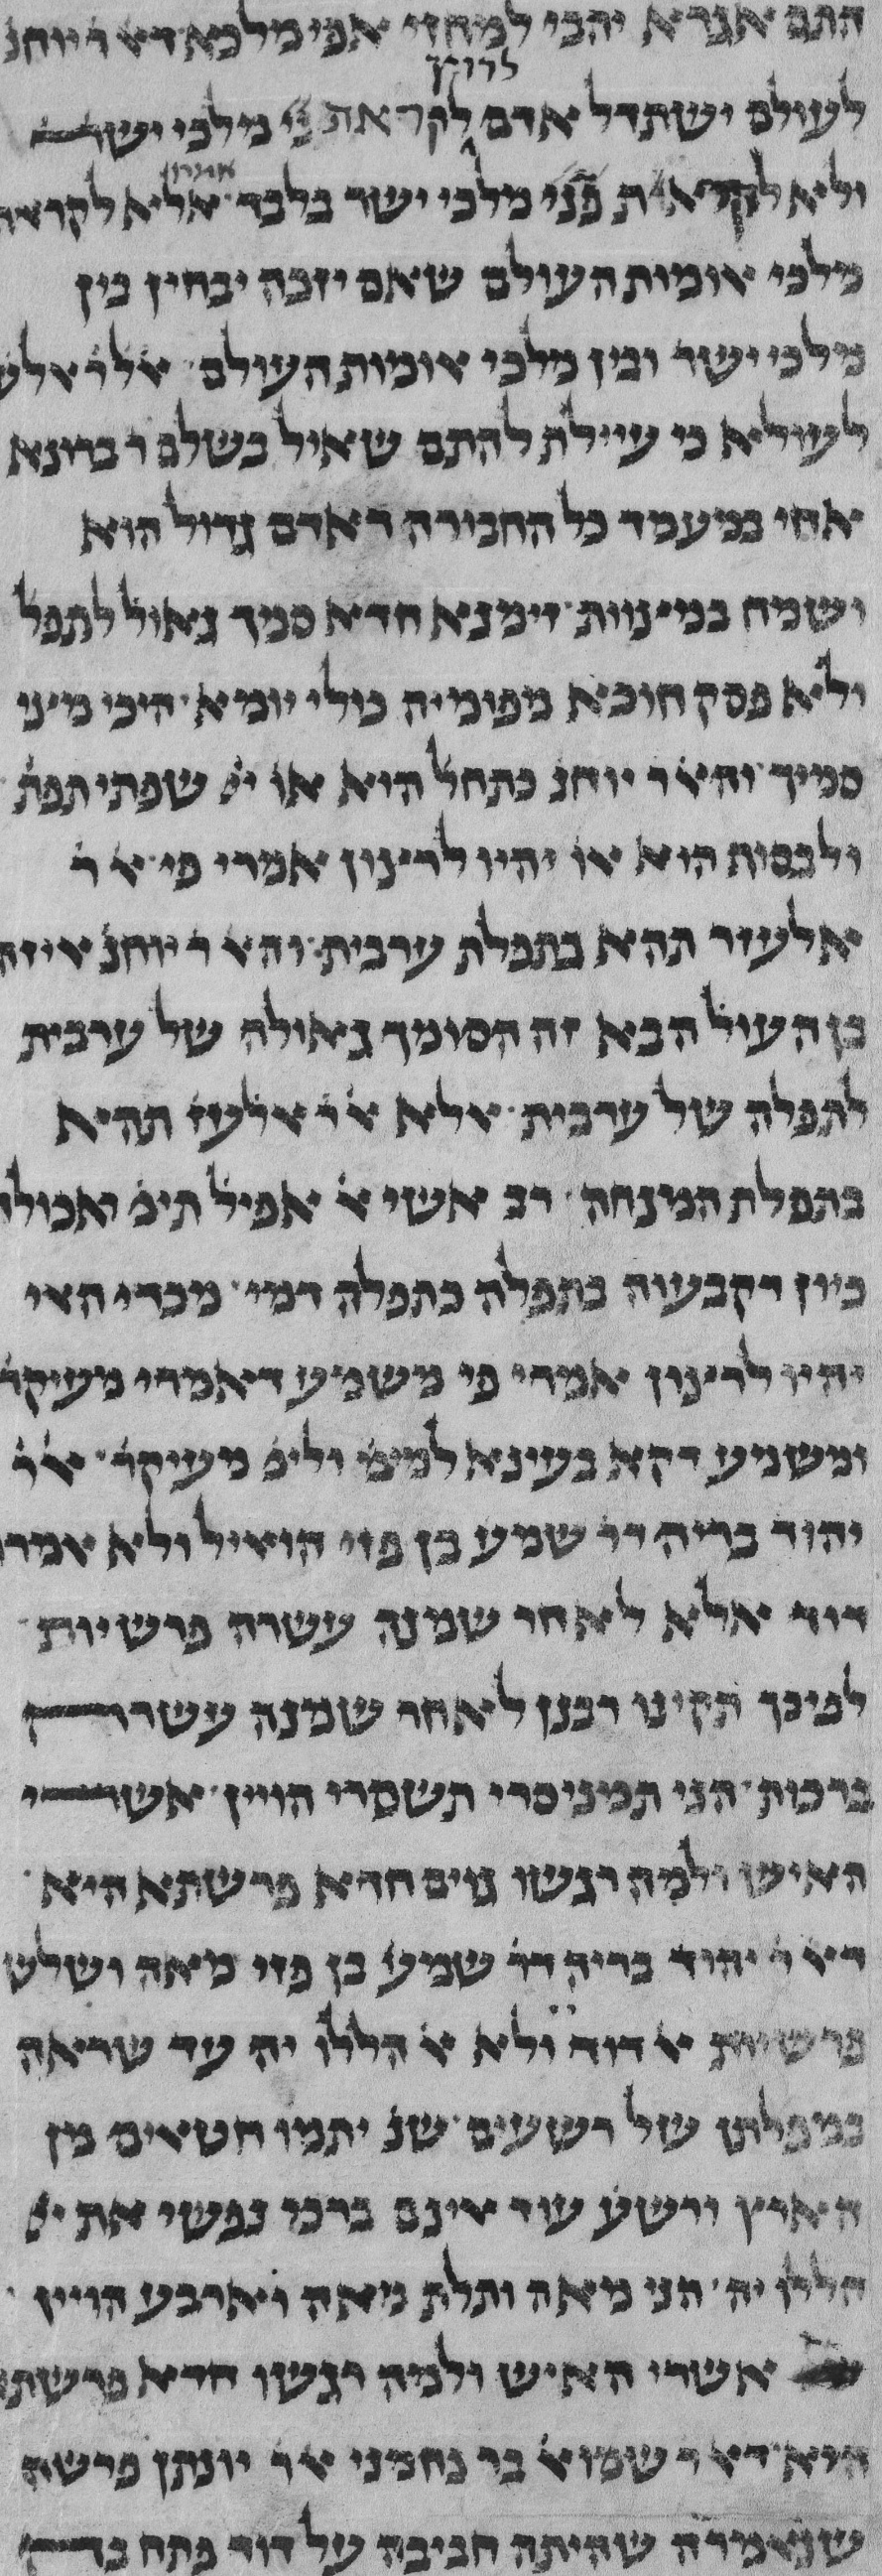 התם אגרא יהבי למחזי אפי מלכא דא ר יוחנ
לרוץ
לעולם ישתדל אדם לקראת פני מלכי ישר
ולא לקראת פני מלכי ישר בלבד אמרו אלא לקראת
מלכי אומות העולם שאם יזכה יבחין בין
מלכי ישר ובין מלכי אומות העולם אל ר אלע
לעולא כי עיילת להתם שאיל בשלם ר ברונא
אחי במעמד כל החבורה דאדם גדול הוא
ושמח במצוות זימנא חדא סמך גאול לתפל
ולא פסק חוכא מפומיה כולי יומא היכי מצי
סמיך והא ר יוחנ בתחל הוא או יי שפתי תפת
ולבסוף הוא או יהיו לרצון אמרי פי א ר
אלעזר תהא בתפלת ערבית והא ר יוחנ איזה
בן העול הבא זה הסומך גאולה של ערבית
לתפלה של ערבית אלא א ר אלעז תהא
בתפלת המנחה רב אשי א אפיל תימ אכולי
כיון דקבעוה בתפלה כתפלה דמי מכדי האי
יהיו לרצון אמרי פי משמע דאמרי מעיקר
ומשמע דקא בעינא למימ ולימ מעיקר א ר
יהוד בריה דר שמע בן פזי הואיל ולא אמרו
דוד אלא לאחר שמנה עשרה פרשיות
לפיכך תקינו רבנן לאחר שמנה עשרה
ברכות הני תמניסרי תשסרי הויין אשרי
האיש ולמה רגשו גוים חדא פרשתא היא
דא ר יהוד בריה דר שמע בן פזי מאה ושלש
פרשיות א דוד ולא א הללו יה עד שראה
במפלתן של רשעים שנ יתמו חטאים מן
הארץ ורשע עוד אינם ברכי נפשי את יי
הללו יה הני מאה ותלת מאה וארבע הויין
אשרי האיש ולמה רגשו חדא פרשתא
היא דא ר שמוא בר נחמני א ר יונתן פרשה
שנאמרה שהיתה חביבה על דוד פתח בה